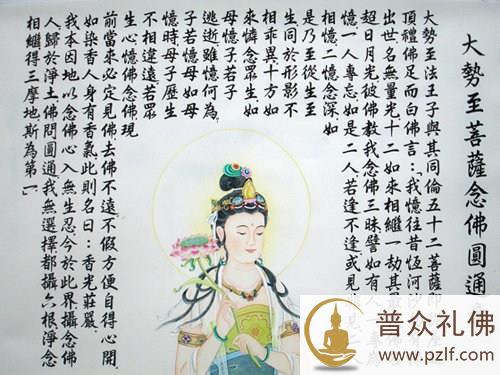 大勢至菩薩念佛圓通
大勢至法王子與其同倫五十二菩薩即
頂禮佛足而白佛言：我憶往昔恆河沙
出世名無量光十二如來相繼一劫其
超日月光彼佛教我念佛三昧譬如有人
憶一人專忘如是二人若逢不逢或見
相憶二憶念深如
是乃至從生至
生同於形影不
相乖異十方如
來憐念眾生如
母憶子若子
逃逝雖憶何為
子若憶母如母
憶時母子歷生
不相違遠若眾
生心憶佛念佛現
前當來必定見佛去佛不遠不假方便自得心開
如染香人身有香氣此則名曰：香光莊嚴
我本因地以念佛心入無生忍今於此界攝念佛
人歸於淨土佛問圓通我無選擇都攝六根淨念
相繼得三摩地斯為第一
普众礼佛
www.pzlf.com